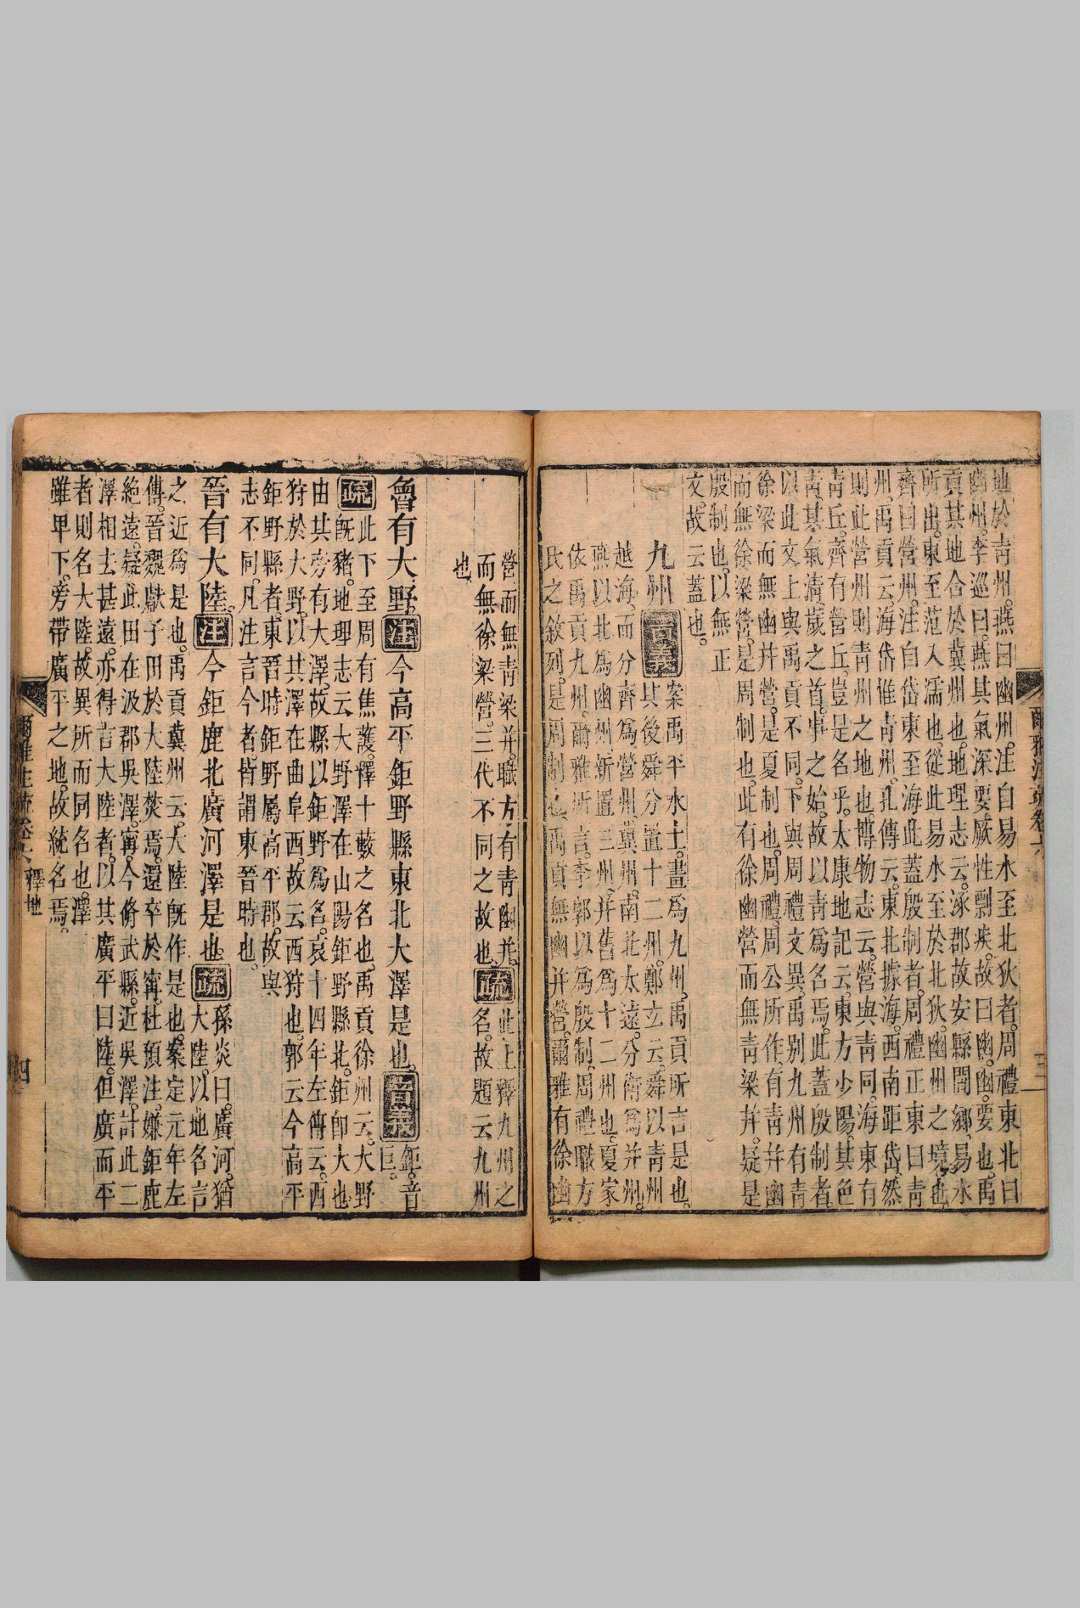 地於青州。燕曰幽州。注自易水至北狄者。周禮東北曰
幽州。李巡曰。燕其氣深要。厥性剽疾。故曰幽。幽。要也。禹
貢其地合於冀州也。地理志云。涿郡故安縣閻鄉。易水
所出。東至范入濡也。從此易水至於北狄。幽州之境也。
齊曰營州。注自岱東至海。此蓋殷制者。周禮正東曰青
州。禹貢云。海岱惟青州。孔傳云。東北據海。西南距岱。然
則此營州則青州之地也。博物志云。營與青同。海東有
青丘。齊有營丘。豈是名乎。太康地記云。東方少陽。其色
青。其氣清。歲之首。事之始。故以青爲名焉。此蓋殷制者。
以此文上與禹貢不同。下與周禮文異。禹別九州有青
徐梁而無幽并營。是夏制也。周禮周公所作。有青并幽
而無徐梁營。是周制也。此有徐幽營而無青梁并。疑是
殷制也。以無正
文。故云蓋也。
九州音義案禹平水土。畫爲九州。禹貢所言是也。
其後舜分置十二州。鄭玄云。舜以青州
越海。而分齊爲營州。冀州。南北太遠。分衛爲并州。
燕以北爲幽州。新置三州。并舊爲十二州也。夏家
依禹貢九州。爾雅所言。李郭以爲殷制。周禮職方
氏之敘列。是周制也。禹貢無幽并營。爾雅有徐幽
營而無青梁并。職方有青幽并
而無徐梁營。三代不同之故也。
也
疏此上釋九州之
名。故題云九州
魯有大野。注今高平鉅野縣東北大澤是也。音義鉅。音
巨。
疏此下至周有焦護。釋十藪之名也。禹貢徐州云。大野
既豬。地理志云。大野澤在山陽鉅野縣北。鉅即大也
由其旁有大澤。故縣以鉅野爲名。哀十四年左傳云。西
狩於大野。以其澤在曲阜西。故云西狩也。郭云今高平
鉅野縣者。東晉時鉅野屬高平郡。故與
志不同。凡注言今者。皆謂東晉時也。
晉有大陸。注今鉅鹿北廣河澤是也。疏孫炎曰。廣河。猶
大陸。以地名言
之。近爲是也。禹貢冀州云。大陸既作是也。案定元年左
傳。晉魏獻子田於大陸。焚焉。還卒於甯。杜預注。嫌鉅鹿
絶遠。疑此田在汲郡吳澤。甯。今脩武縣。近吳澤。計此二
澤。相去甚遠。亦得言大陸者。以其廣平曰陸。但廣而平
者則名大陸。故異所而同名也。澤
雖卑下。旁帶廣平之地。故統名焉。
爾雅注疏卷六 釋地
四